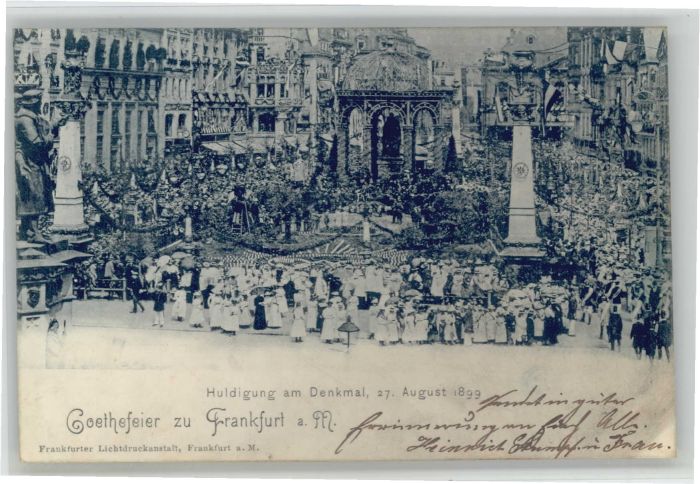 Huldigung am Denkmal, 27. August 1899
Goethefeier zu Frankfurt a. M.
Frankfurter Lichtdruckanstalt, Frankfurt a. M.
Sendet in guter
Erinnerung an Euch Alle.
Heinrich u. Frau.